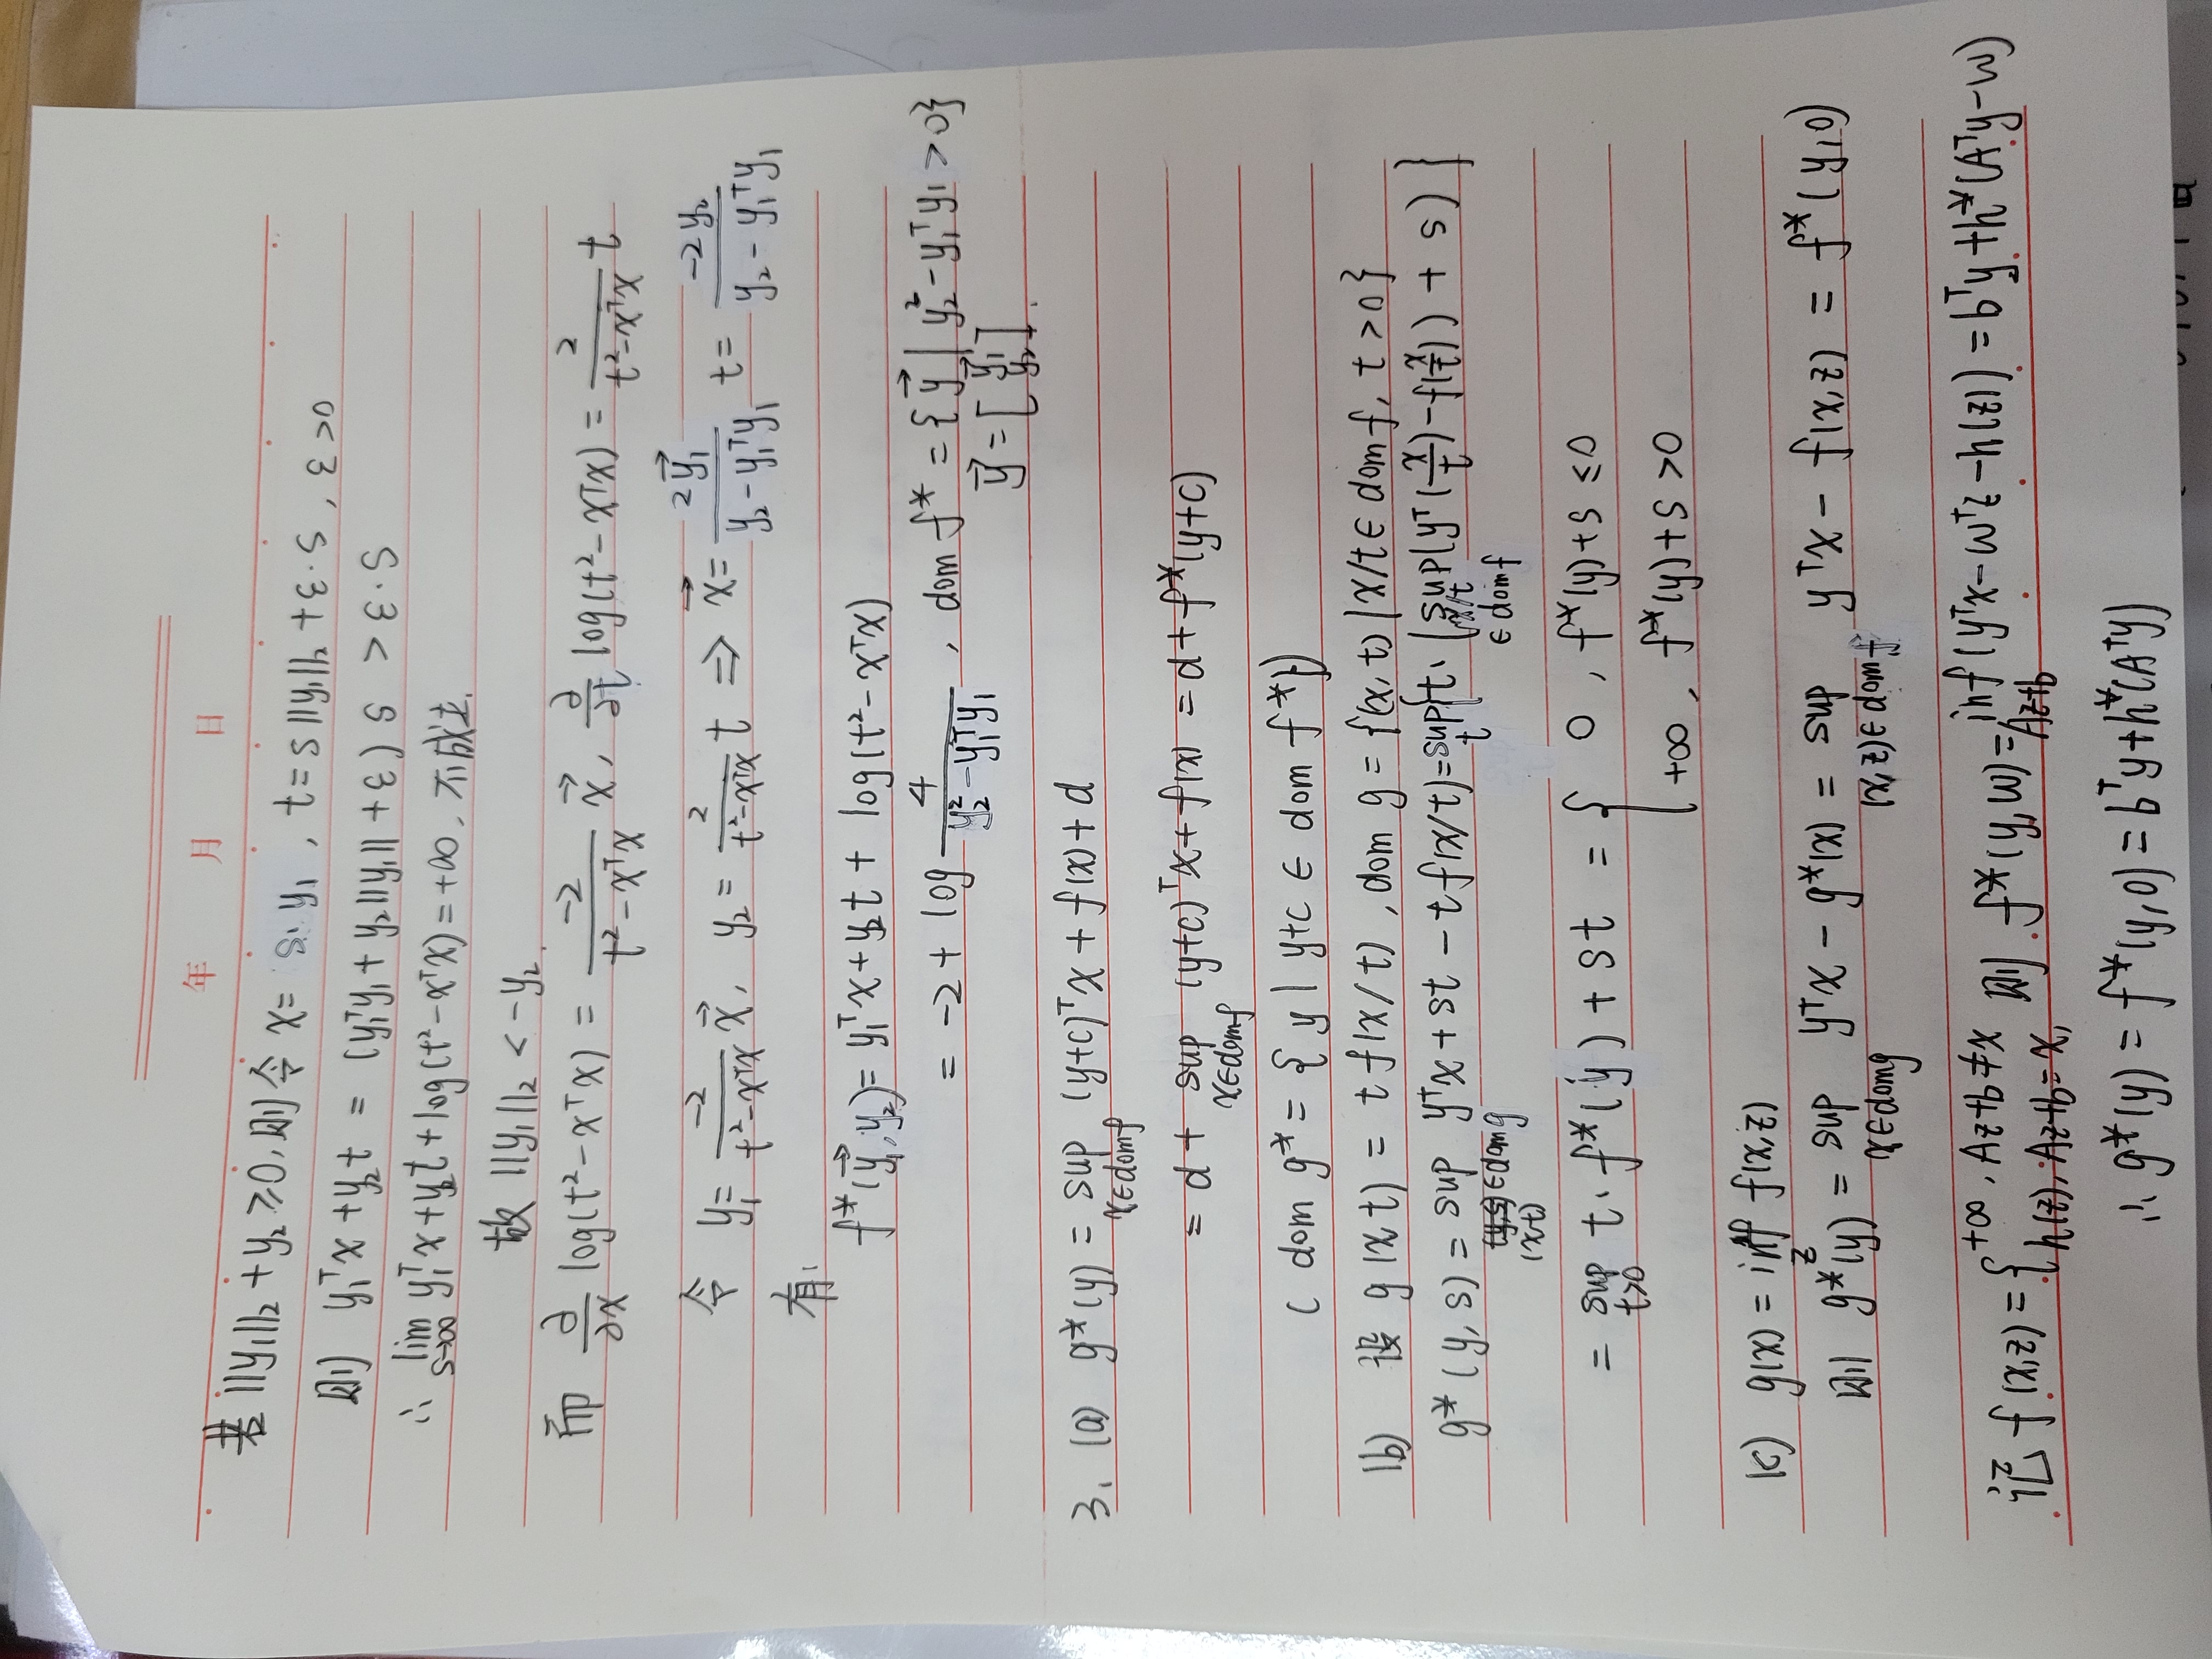 年 月 日
若 ||y₁||₂ + y₂ ≥ 0, 则令 x = s·y₁ , t = s||y₁||₂ + ε·s , ε > 0
则 y₁ᵀx + y₂t = (y₁ᵀy₁ + y₂||y₁|| + ε) s > ε·s
∴ lim_{s→∞} y₁ᵀx + y₂t + log(t² - xᵀx) = +∞ , 不成立.
故 ||y₁||₂ < -y₂.
而 ∂/∂x log(t² - xᵀx) = -2/(t² - xᵀx) x⃗, ∂/∂t log(t² - xᵀx) = 2/(t² - xᵀx) t
令 y₁ = -2/(t² - xᵀx) x⃗, y₂ = 2/(t² - xᵀx) t ⇒ x⃗ = 2y⃗₁/(y₂ - y₁ᵀy₁) t = -2y₂/(y₂ - y₁ᵀy₁)
有:
f*(y⃗₁, y₂) = y₁ᵀx + y₂t + log(t² - xᵀx)
= -2 + log 4/(y₂² - y₁ᵀy₁) , dom f* = {y⃗ | y₂² - y₁ᵀy₁ > 0}
y⃗ = [y⃗₁ y₂].
3. (a) g*(y) = sup_{x∈domf} (y+c)ᵀx + f(x) + d
= d + sup_{x∈domf} (y+c)ᵀx + f(x) = d + f*(y+c)
( dom g* = { y | y+c ∈ dom f*})
(b) 设 g(x,t) = t f(x/t) , dom g = {(x,t) | x/t ∈ dom f, t > 0}
g*(y, s) = sup_{(x,t)∈domg} yᵀx + st - t f(x/t) = sup_t {t·(sup_{x/t ∈ domf} (yᵀ(x/t) - f(x/t)) + s)}
= sup_{t>0} t·f*(y) + st = { 0 , f*(y)+s ≤ 0
+∞ , f*(y)+s > 0
(c) g(x) = inf_z f(x,z)
则 g*(y) = sup_{x∈domg} yᵀx - g*(x) = sup_{(x,z)∈domf} yᵀx - f(x,z) = f*(y,0)
记 f(x,z) = { +∞ , Az+b ≠ x
h(z), Az+b = x, 则 f*(y,w) = inf_{Az+b} (yᵀx - wᵀz - h(z)) = bᵀy + h*(Aᵀy - w)
∴ g*(y) = f*(y,0) = bᵀy + h*(Aᵀy)